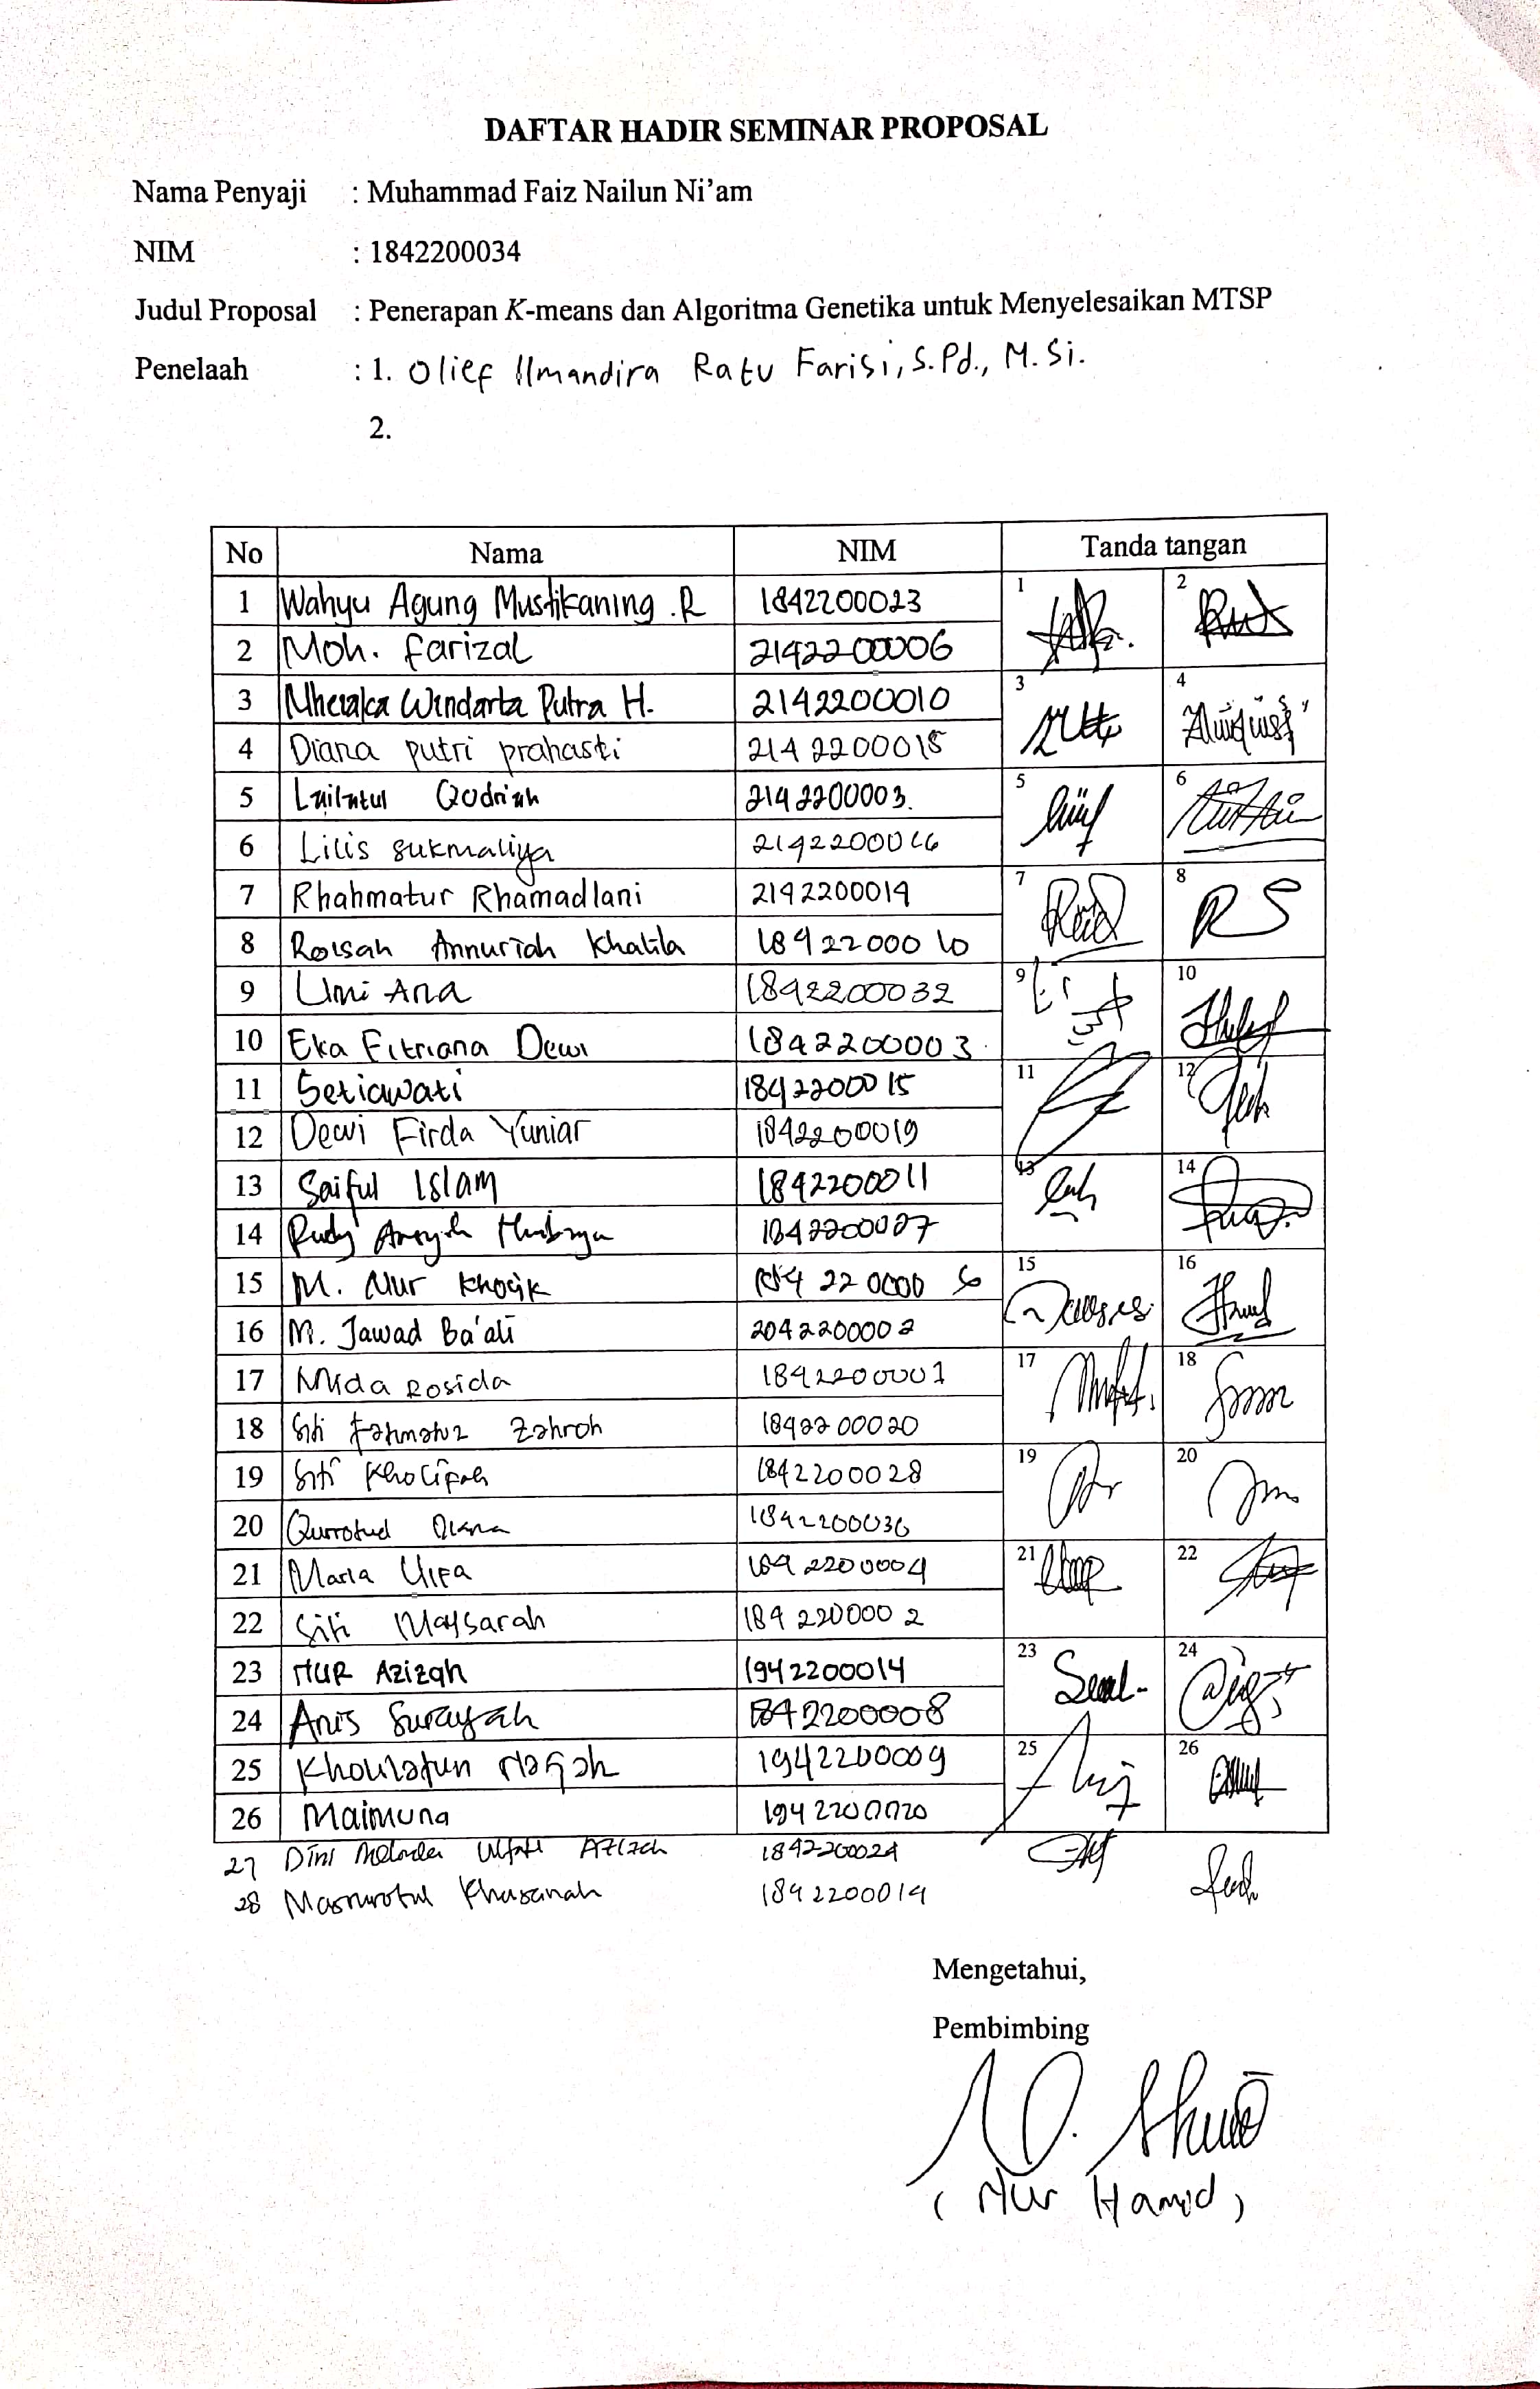 DAFTAR HADIR SEMINAR PROPOSAL
Nama Penyaji : Muhammad Faiz Nailun Ni'am
NIM : 1842200034
Judul Proposal : Penerapan K-means dan Algoritma Genetika untuk Menyelesaikan MTSP
Penelaah : 1. Olief Ilmandira Ratu Farisi, S.Pd., M.Si.
2.
No Nama NIM Tanda tangan
1 Wahyu Agung Mustikaning .R 1842200023 1 2
2 Moh. Farizal 2142200006
3 Windarta Putra H. 2142200010 3 4
4 Diana putri prahasti 2142200015
5 Lailatul Qodriah 2142200003. 5 6
6 Lilis sukmaliya
7 Rhahmatur Rhamadlani 2142200014 7 8
8 Roisah Annuriah Khalila 1842200010
9 Umi Ana 1842200032 9 10
10 Eka Fitriana Dewi 1842200003.
11 Setiawati 1842200015 11 12
12 Dewi Firda Yuniar 1842200019
13 Saiful Islam 1842200011 13 14
14 Rudy 1842200027
15 M. Nur 15 16
16 M. Jawad Ba'ali 2042200002
17 Mida Rosida 1842200001 17 18
18 Siti Fatimatuz Zahroh 1842200020
19 Siti Kholifah 1842200028 19 20
20 Qurrotud Diana 1842200036
21 Maria Ulfa 1842200004 21 22
22 Siti Maysarah 1842200002
23 Nur Azizah 1942200014 23 24
24 Anis Surayyah 1842200008
25 1942200009 25 26
26 Maimuna 1942200020
27 Dini Azizah 1842200024
28 Masrurotul Khasanah 1842200014
Mengetahui,
Pembimbing
(Nur Hamid)